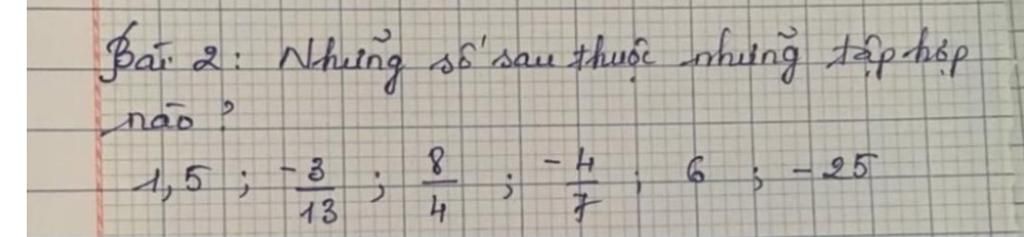 Bài 2: Những số sau thuộc những tập hợp
nào?
1,5 ; -3/13 ; 8/4 ; -4/7 ; 6 ; -25